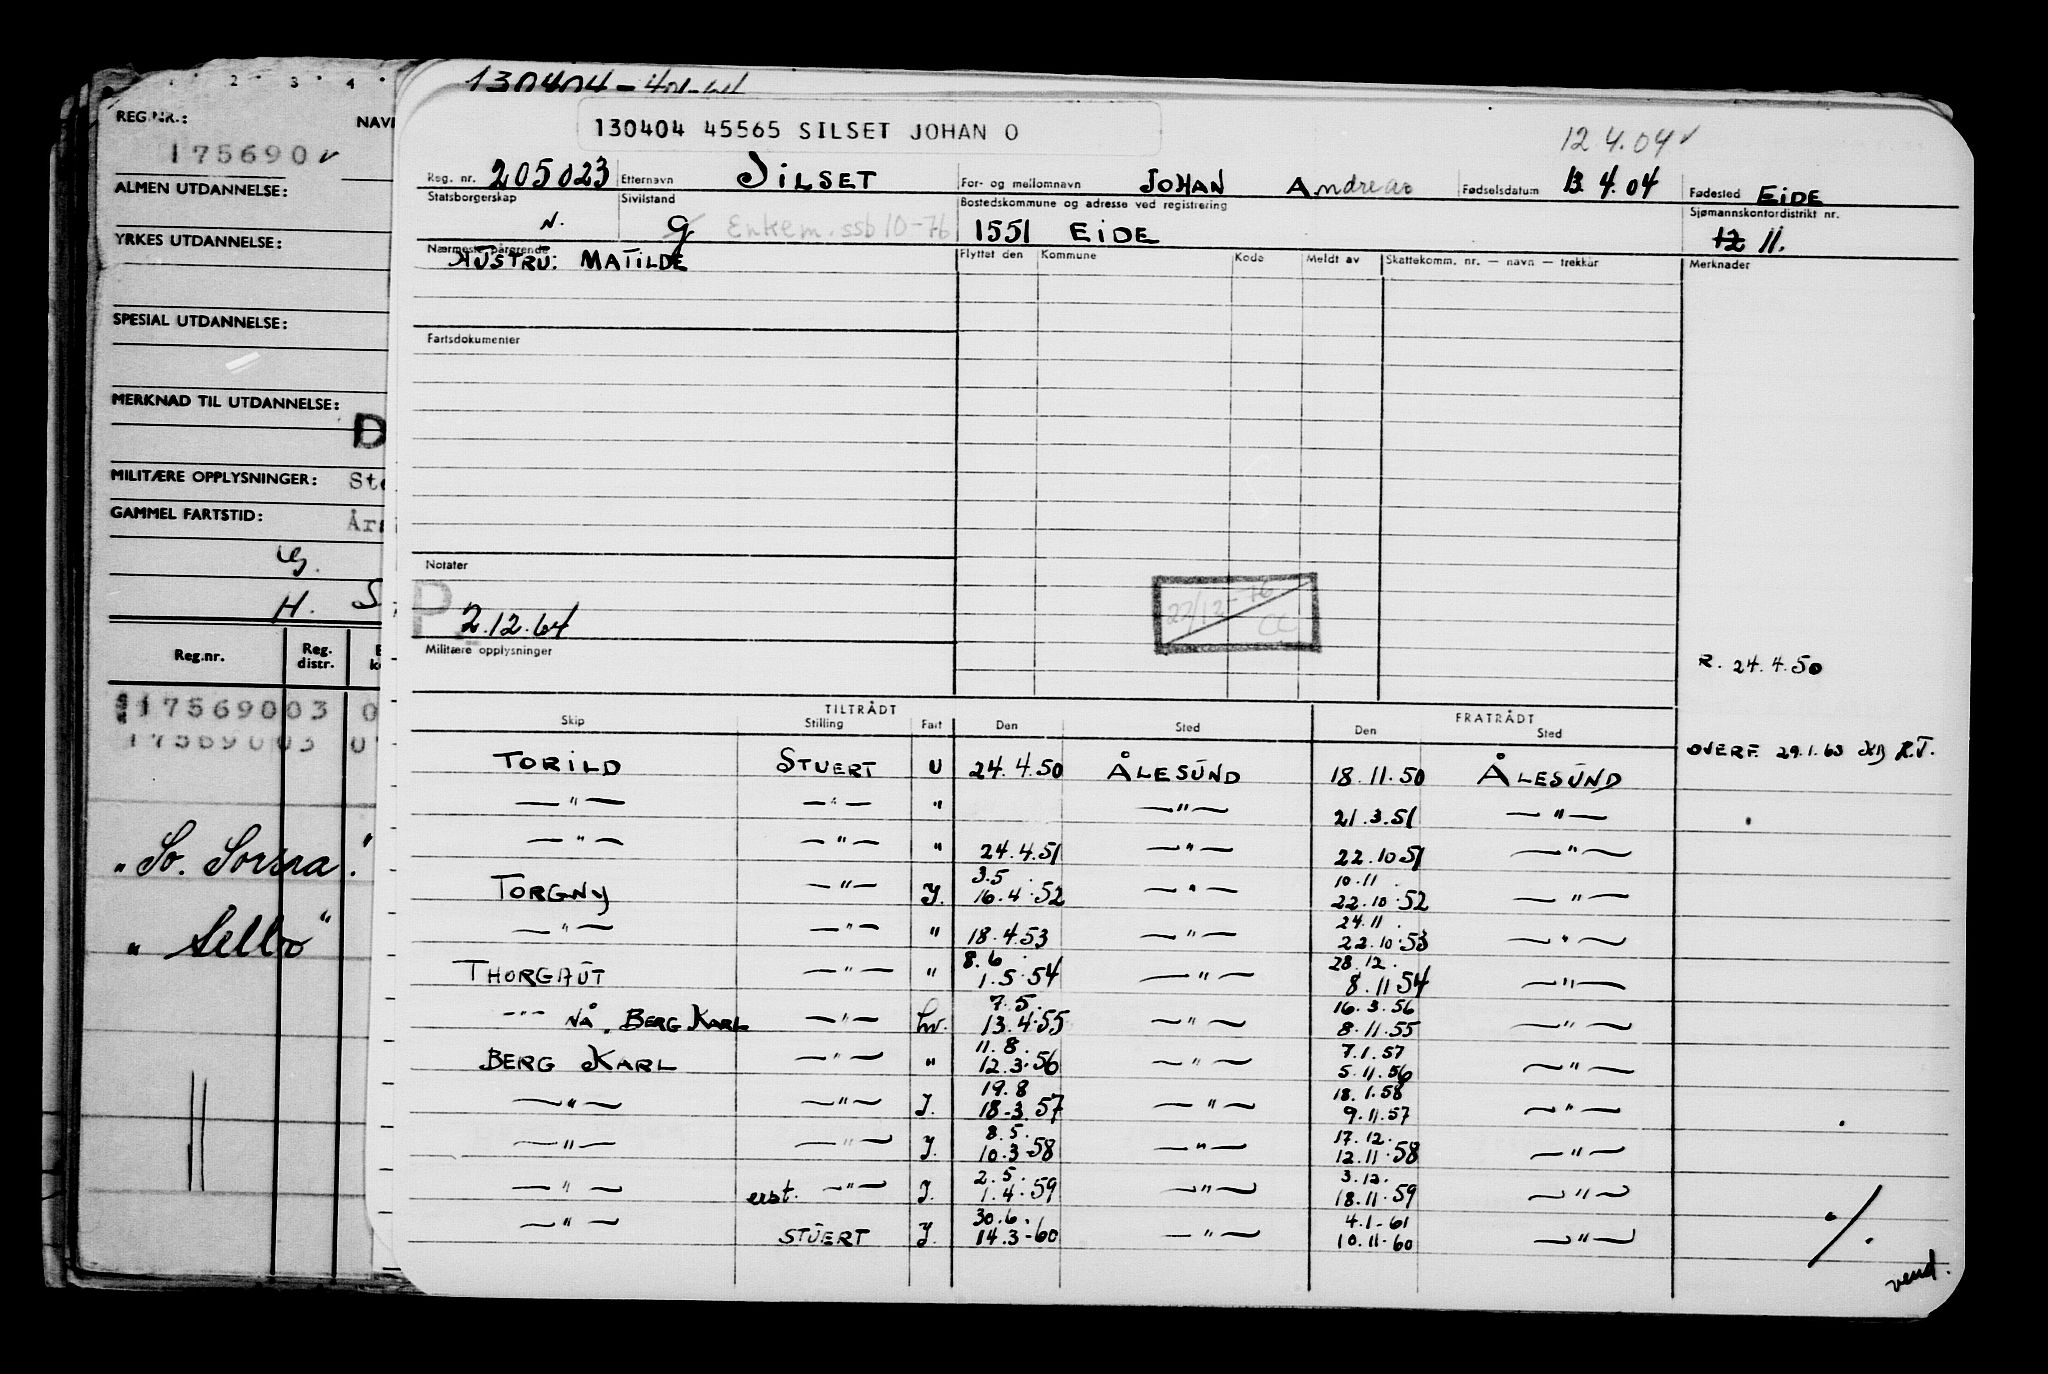 1 2 3 4
REG.NR.: NAV
175690 ✓
ALMEN UTDANNELSE:
YRKES UTDANNELSE:
SPESIAL UTDANNELSE:
MERKNAD TIL UTDANNELSE:
D
MILITÆRE OPPLYSNINGER: Ste
GAMMEL FARTSTID: År
G.
H. S
Reg.nr. Reg. distr.
17569003 0
17569003 0
"So. Sorsra."
"Selbo"
130404-
130404 45565 SILSET JOHAN O
12 4.04 ✓
Reg. nr. 205023 Etternavn SILSET For- og mellomnavn JOHAN Andreas Fødselsdatum 13.4.04 Fødested EIDE
Statsborgerskap N. Sivilstand G Enkem. ssb 10-76 Bostedskommune og adresse ved registrering 1551 EIDE Sjømannskontordistrikt nr. 12 11.
Nærmeste pårørende HUSTRU: MATILDE Flyttet den Kommune Kode Meldt av Skattekomm. nr. — navn — trekkår Merknader
Fartsdokumenter
Notater
P. 2.12.64
22/12-76 CC
Militære opplysninger
R. 24.4.50
TILTRÅDT FRATRÅDT
Skip Stilling Fart Den Sted Den Sted
OVERF. 29.1.63 R.T.
TORILD STUERT U 24.4.50 ÅLESUND 18.11.50 ÅLESUND
—"— —"— " —"— 21.3.51 —"—
—"— —"— " 24.4.51 —"— 22.10 51 —"—
3.5. 10.11.
TORGNY —"— J. 16.4.52 —"— 22.10.52 —"—
24.11.
—"— —"— " 18.4.53 —"— 22.10.53 —"—
8.6. 28.12.
THORGAUT —"— " 1.5.54 —"— 8.11 54 —"—
7.5. 16.3.56
—"— NÅ. BERG KARL —"— hv. 13.4.55 —"— 8.11.55 —"—
11.8. 7.1.57
BERG KARL —"— " 12.3.56 —"— 5.11.56 —"—
19.8 18.1.58
—"— —"— J. 18-3.57 —"— 9.11.57 —"—
8.5. 17.12.
—"— —"— J. 10.3.58 —"— 12.11.58 —"—
2.5. 3.12.
—"— erst. —"— J. 1.4.59 —"— 18.11.59 —"—
30.6. 4.1-61
—"— STUERT J. 14.3-60 —"— 10.11-60 —"—
./.
vend.